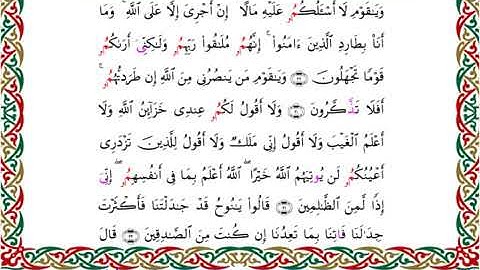 وَيَٰقَوْمِ لَا أَسْـَٔلُكُمُۥ عَلَيْهِ مَالًا إِنْ أَجْرِىَ إِلَّا عَلَى ٱللَّهِ ۚ وَمَا
أَنَا۠ بِطَارِدِ ٱلَّذِينَ ءَامَنُوا ۚ إِنَّهُمُۥ مُلَٰقُوا رَبِّهِمُۥ وَلَٰكِنِّىَ أَرَىٰكُمُۥ
قَوْمًا تَجْهَلُونَ وَيَٰقَوْمِ مَن يَنصُرُنِى مِنَ ٱللَّهِ إِن طَرَدتُّهُمُۥ ۚ
أَفَلَا تَذَّكَّرُونَ وَلَا أَقُولُ لَكُمُۥ عِندِى خَزَآئِنُ ٱللَّهِ وَلَا
أَعْلَمُ ٱلْغَيْبَ وَلَا أَقُولُ إِنِّى مَلَكٌ وَلَا أَقُولُ لِلَّذِينَ تَزْدَرِى
أَعْيُنُكُمُۥ لَن يُوتِيَهُمُ ٱللَّهُ خَيْرًا ۖ ٱللَّهُ أَعْلَمُ بِمَا فِى أَنفُسِهِمُۥ ۖ إِنِّىَ
إِذًا لَّمِنَ ٱلظَّٰلِمِينَ قَالُوا يَٰنُوحُ قَدْ جَٰدَلْتَنَا فَأَكْثَرْتَ
جِدَٰلَنَا فَاتِنَا بِمَا تَعِدُنَا إِن كُنتَ مِنَ ٱلصَّٰدِقِينَ قَالَ